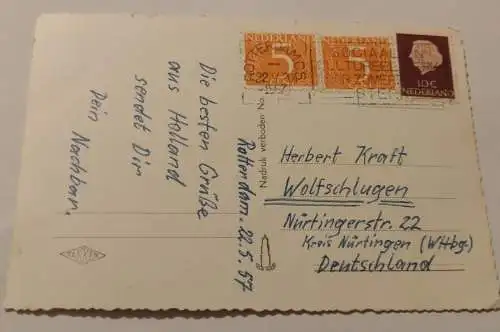 Die besten Grüße
aus Holland
sendet Dir
Dein Nachbar.
Rotterdam. 22.5.57
Nadruk verboden No.
NEDERLAND
5
NEDERLAND
5
10c
NEDERLAND
ROTTERDAM
Herbert Kraft
Wolfschlugen
Nürtingerstr. 22
Kreis Nürtingen (Wttbg.)
Deutschland